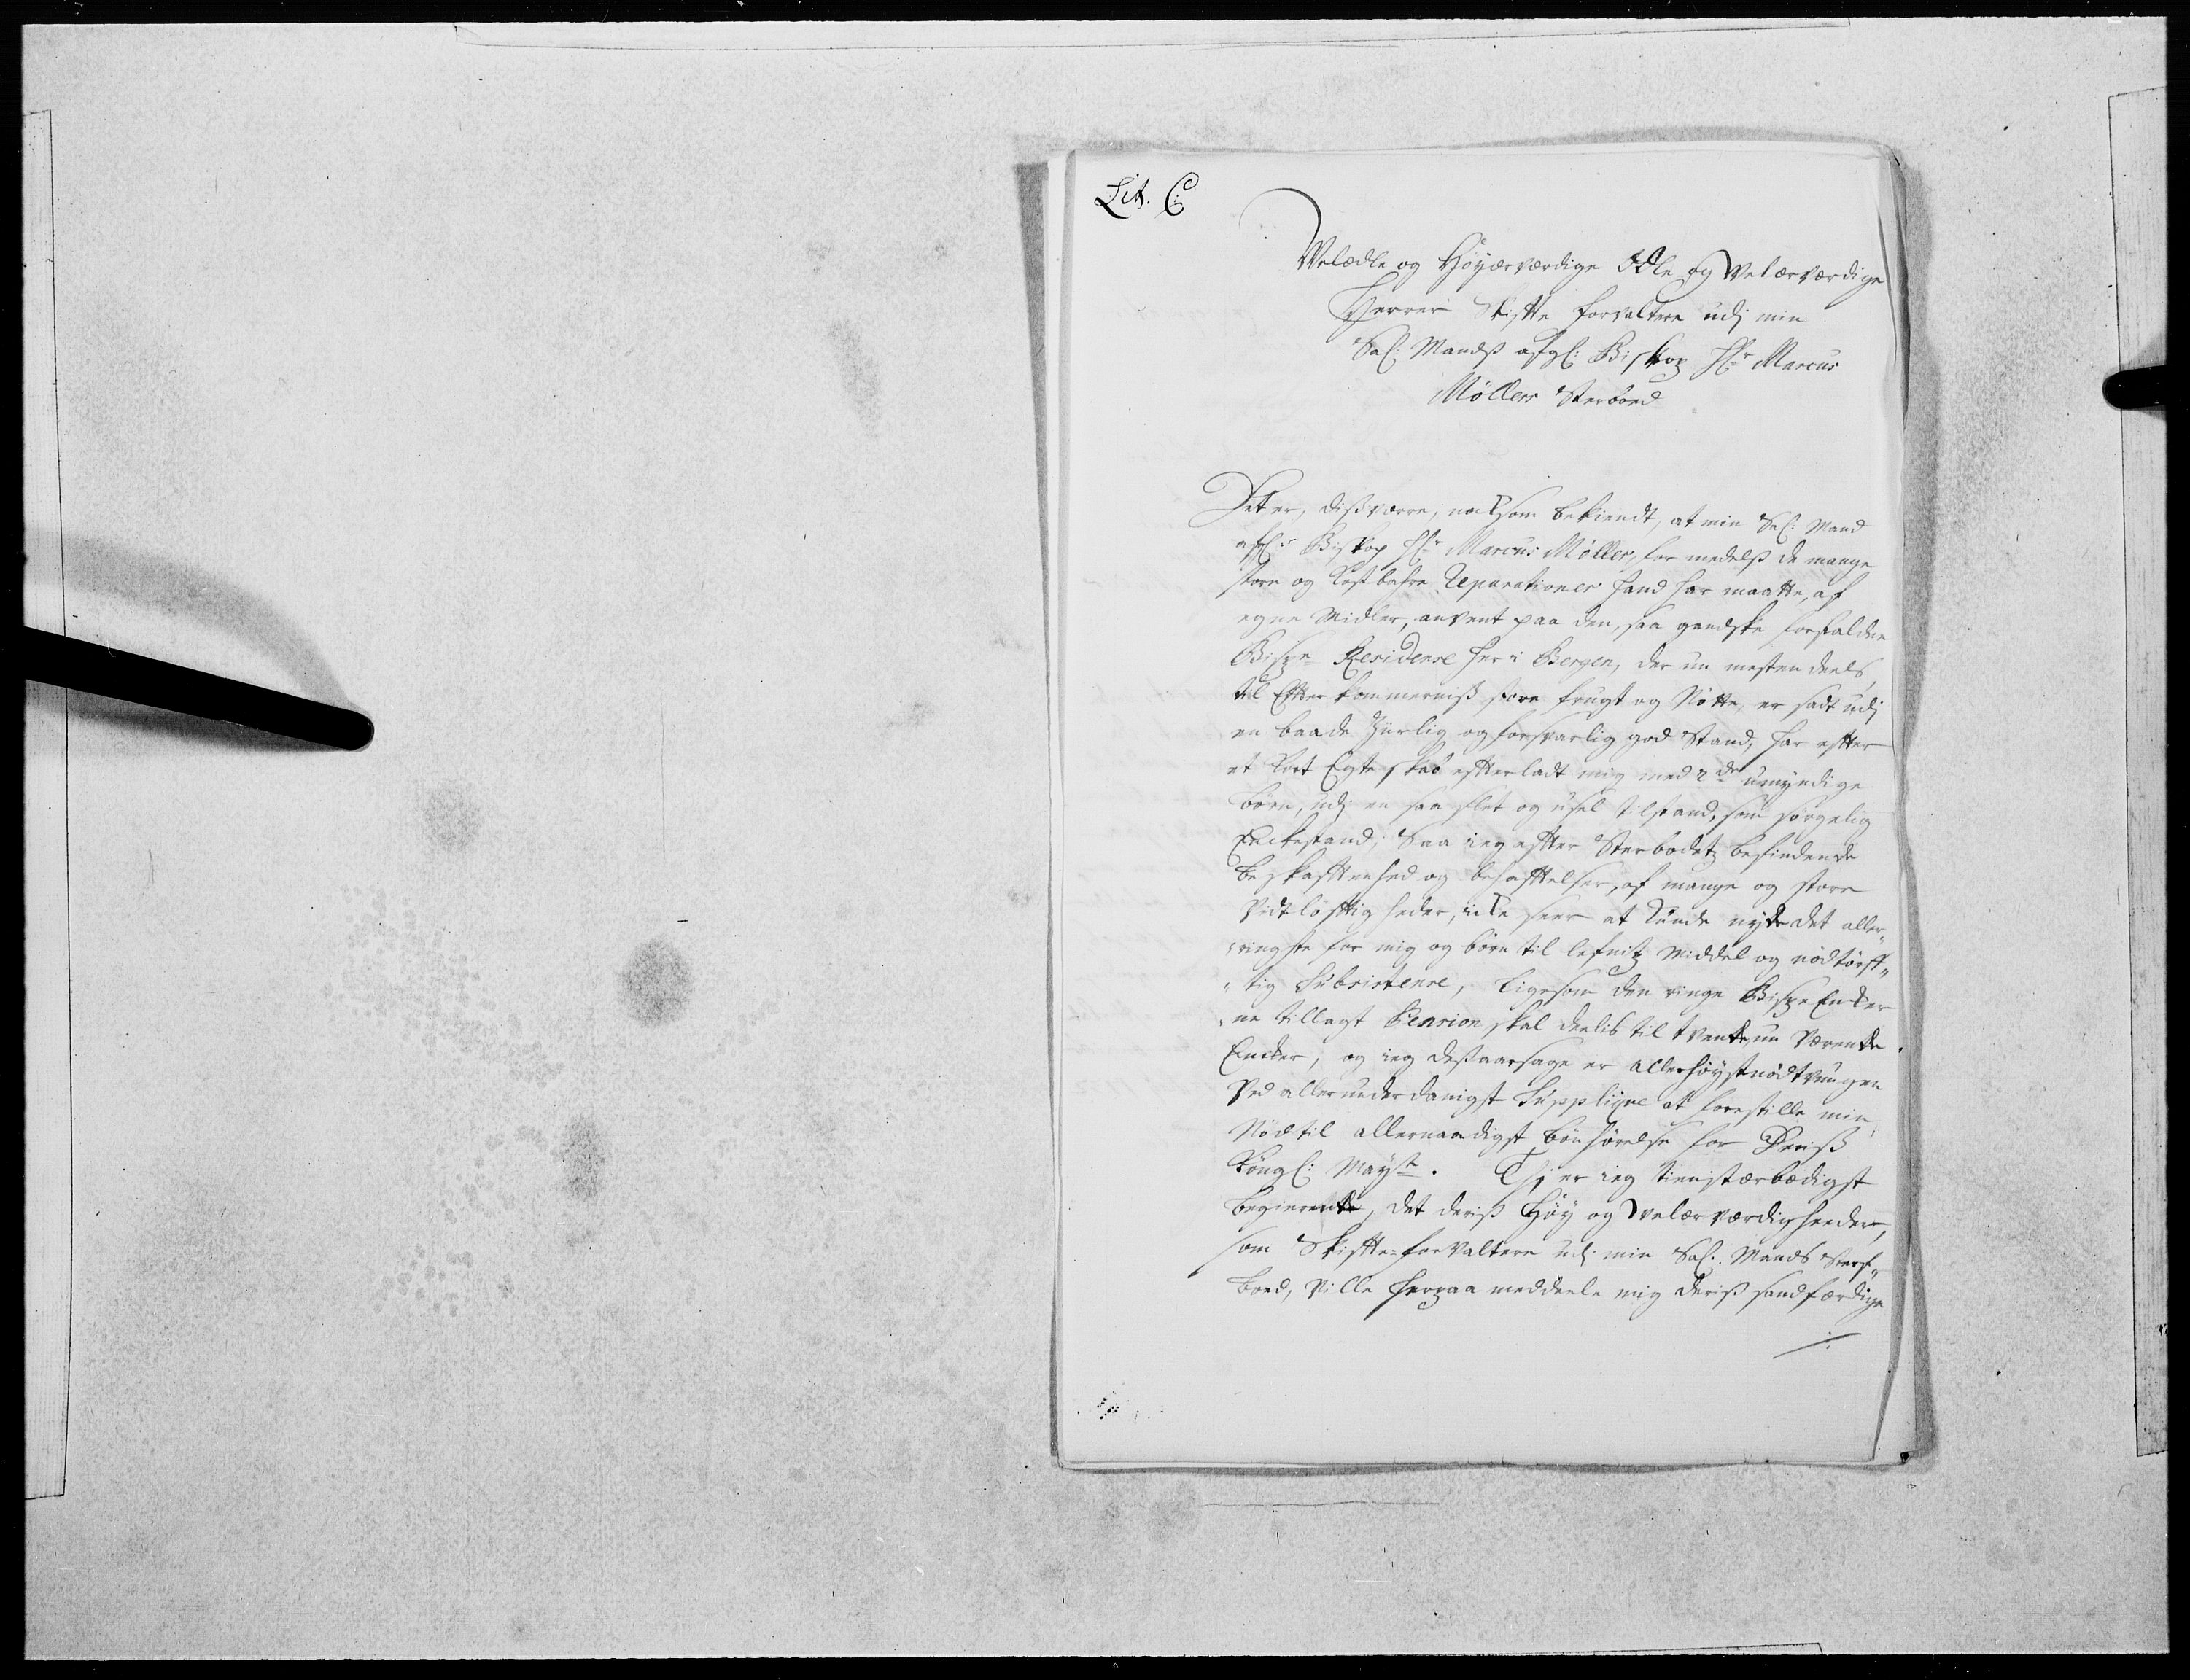 Lit. C:
Velædle og Høyærværdige Ædle og Velærværdige
Herrer Skiftte forvaltere udj min
Sal: Mandß afgl: Biskop Hr Marcus
Møllers Sterboed
Det er, dißværre, noksom bekiendt, at min Sal: Mand
afgl: Biskop Hr Marcus Møller, formedelß de mange
store og kostbahre Reparationer hand har maatte, af
egne Midler, anvent paa den, saa gandske forfaldne
Bispe Residense her i Bergen, der nu mesten deels,
til Efterkommerniß store frugt og Nøtte, er sadt udj
en baade Zirlig og forsvarlig god Stand, har efter
et kort Egteskab efterladt mig med 2de umyndige
børn, udj en saa slet og usel tilstand, som sørgelig
Enckestand; Saa ieg after Sterbodetz befindende
beskaffenhed og behefttelser, af mange og store
Vidtløfttigheder, icke seer at kunde nyde det aller„
„ringste for mig og børn til lefnitz Middel og nødtørff„
„tig Subsistense, ligesom den ringe BispeEncker
„ne tillagt Pension skal deelis til tvende nu værende
Encker, og ieg desaarsage er allerhøystnødtvungen
ved allerunderdanigst Supplique at forestille min
Nød til allernaadigst bønhørelse for Deriß
Kongl: Mayst. Thj er ieg tienstærbødigst
begierende, det deriß Høy og Velærværdigheeder,
som Skiftte=forvaltere udj min Sal: Mands Sterf„
boed, ville herpaa meddeele mig deriß sandfærdige
./.